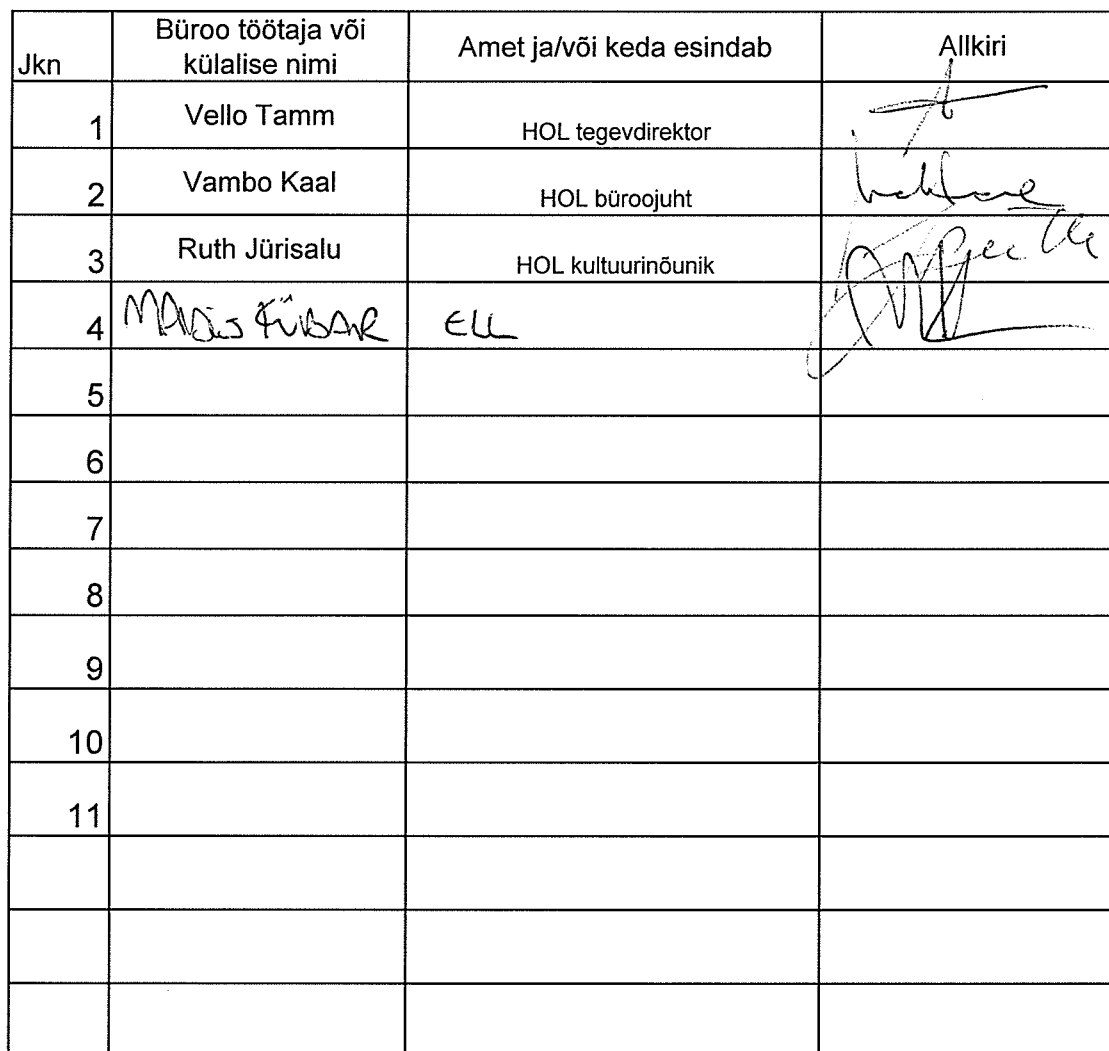 Jkn Büroo töötaja või külalise nimi Amet ja/või keda esindab Allkiri
1 Vello Tamm HOL tegevdirektor
2 Vambo Kaal HOL büroojuht
3 Ruth Jürisalu HOL kultuurinõunik
4 MADIS KÜBAR ELL
5
6
7
8
9
10
11